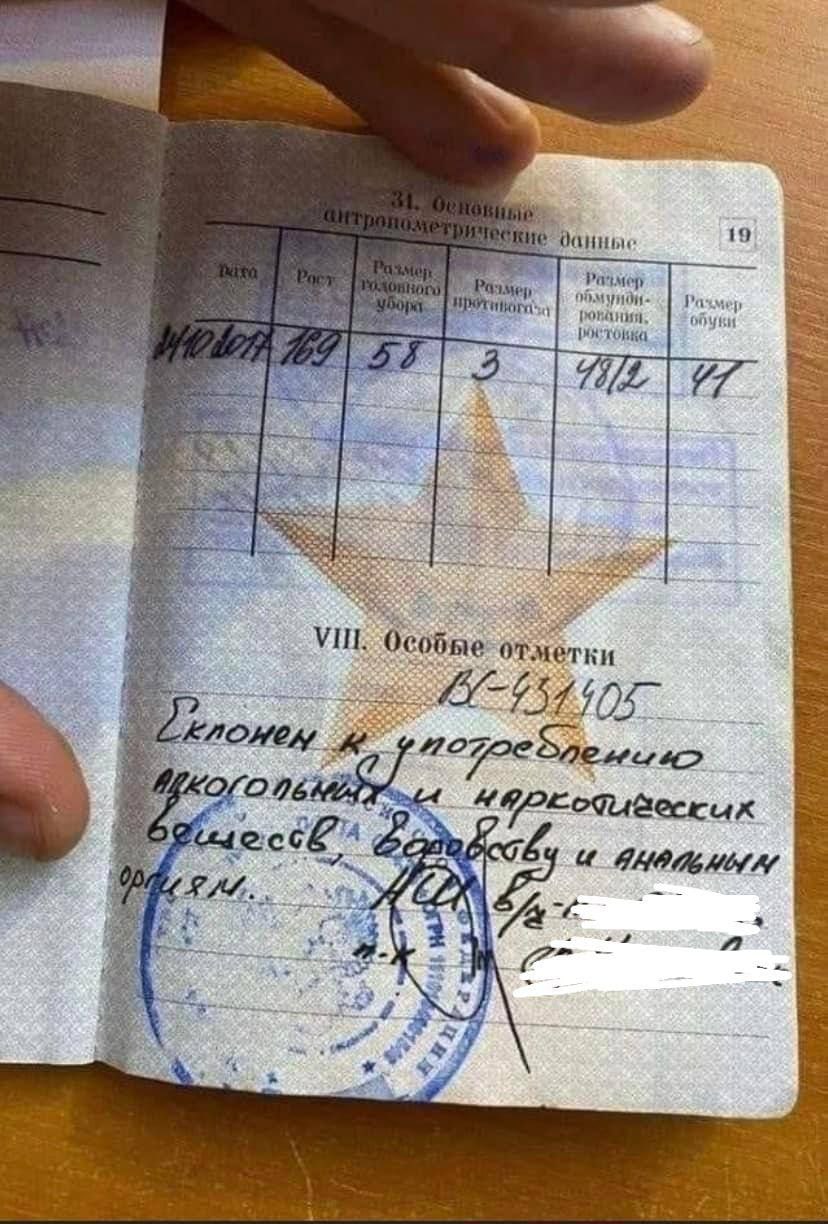 31. Основные
антропометрические данные
19
Дата Рост Размер головного убора Размер противогаза Размер обмундирования, ростовка Размер обуви
24102017 169 58 3 48/2 41
VIII. Особые отметки
ВС-431405
Склонен к употреблению
алкогольных и наркотических
веществ, воровству и анальным
оргиям. НШ в/ч-
п-к